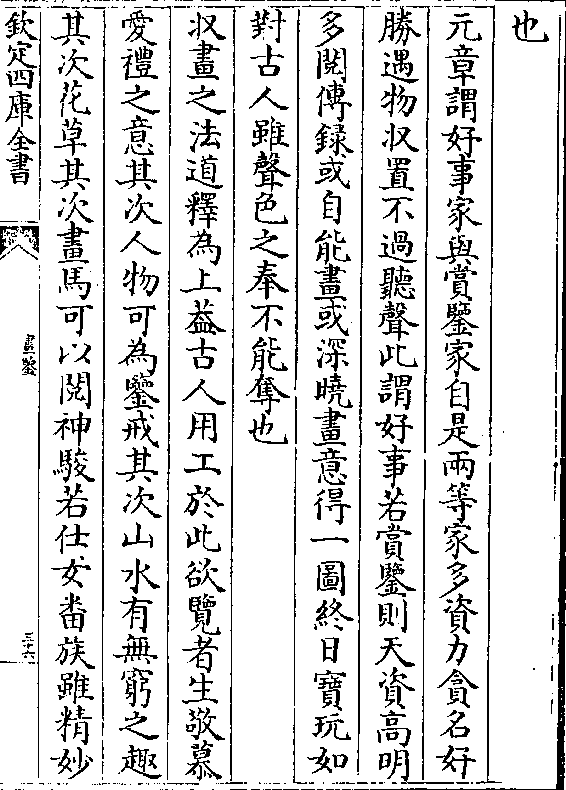 也
元章謂好事家與賞鑒家自是兩等家多資力貪名好
勝遇物収置不過聽聲此謂好事若賞鑒則天資高明
多閱傳録或自能畫或深曉畫意得一圖終日寶玩如
對古人雖聲色之奉不能奪也
収畫之法道釋為上葢古人用工於此欲覽者生敬慕
愛禮之意其次人物可為鑒戒其次山水有無窮之趣
其次花草其次畫馬可以閱神駿若仕女畨族雖精妙
欽定四庫全書
畫鑒
三十六